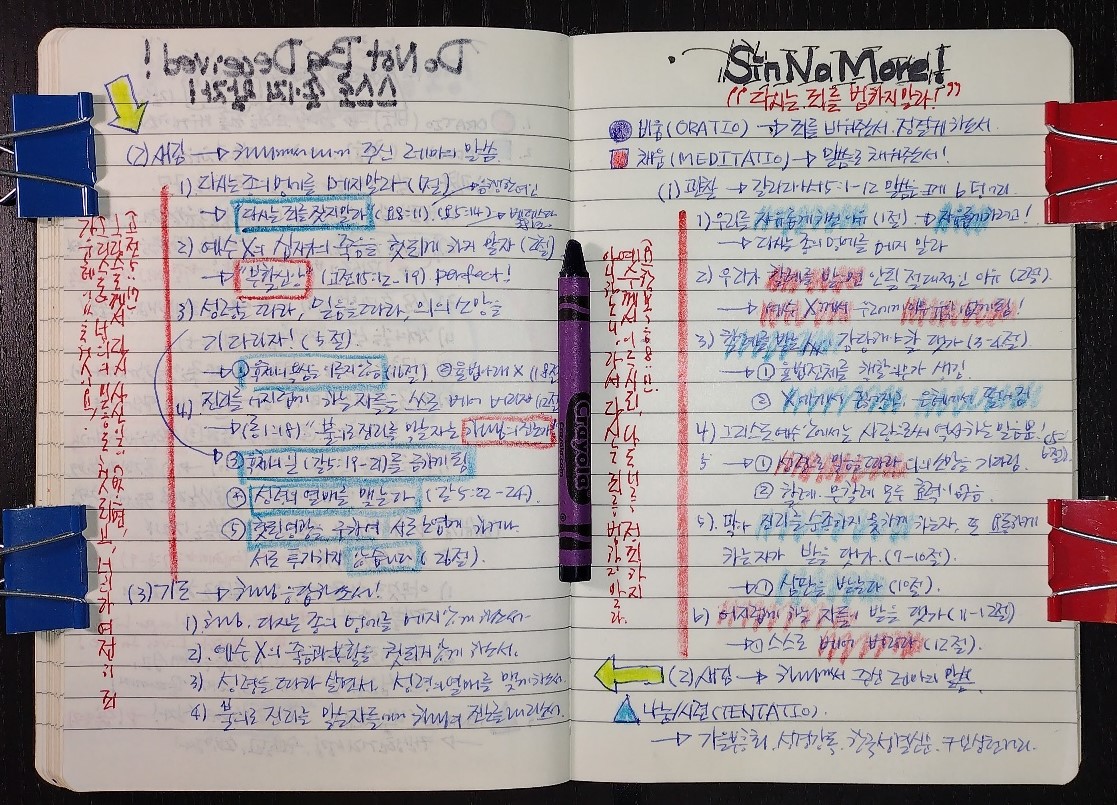 Do Not Be Deceived!
스스로 속이지 말라!
(2) 새김 → 하나님께서 나에게 주신 레마의 말씀
1) 다시는 종의 멍에를 메지 말라 (1절)
→ "다시는 죄를 짓지 말라" (요8:11), (요5:14) →
2) 예수 X의 십자가의 죽음을 헛되게 하지 말자 (2절)
→ "부활신앙" (고전15:12-19) perfect!
3) 성령을 따라, 믿음을 따라, 의의 소망을
기다리자! (5절)
→ ① 육체의 욕심을 이루지 않음 (16절) ② 율법 아래 X (18절
4) 진리를 어지럽게 하는 자들을 스스로 베어 버리자 (12절
→ (롬1:18) "불의로 진리를 막는 자는
③ 육체의 일 (갈5:19-21)를 금하게 됨
④ 성령의 열매를 맺는다 (갈5:22-24).
⑤ 헛된 영광을 구하여 서로 노엽게 하거나
서로 투기하지 않습니다 (26절).
(3) 기도 → 하나님 응답하소서!
1) 하나님, 다시는 종의 멍에를 메지 않게 하소서.
2) 예수 X의 죽음과 부활을 헛되게 않게 하소서.
3) 성령을 따라 살면서, 성령의 열매를 맺게 하소서.
4) 불의로 진리를 막는 자들에게 하나님의 진노를 내리소서.
고전15:17
그리스도께서 다시 사신 일이 없으면,
너희의 믿음도 헛되고, 너희가 여전히 죄
가운데 있을 것이요
Sin No More!
"다시는 죄를 범하지 말라!"
비움 (ORATIO) → 죄를 비워주소서. 정결케 하소서.
채움 (MEDITATIO) → 말씀으로 채워주소서!
(1) 관찰 → 갈라디아서 5:1-12 말씀
1) 우리를 자유롭게 하신 이유 (1절) → 자유롭게 하려고!
→ 다시는 종의 멍에를 메지 말라
2) 우리가 할례를 받으면 안 될 절대적인 이유 (2절).
→ 예수 X께서 우리에게 아무 유익이 없게 됨!
3) 할례를 받은 각 사람에게 할 댓가 (3-4절).
→ ① 율법 전체를 행할 의무가 생김.
② X에게서 끊어지고, 은혜에서 떨어짐
4) 그리스도 예수 안에서는 사랑으로써 역사하는 믿음뿐! (5-6절).
→ ① 성령으로 믿음을 따라 의의 소망을 기다림.
② 할례. 무할례 모두 효력이 없음.
5) 막아 진리를 순종하지 못하게 하는 자, 또 요동하게
하는 자가 받을 댓가. (7-10절).
→ ① 심판을 받는다 (10절).
6) 어지럽게 하는 자들이 받을 댓가 (11-12절)
→ ① 스스로 베어 버리라 (12절)
(2) 새김 → 하나님께서 주신 레마의 말씀
나눔/시련 (TENTATIO).
→ 가을부흥회. 성경강독.
요한복음 8:11.
예수께서 이르시되, 나도 너를 정죄하지
아니하노니, 가서 다시는 죄를 범하지 말라.
Crayola